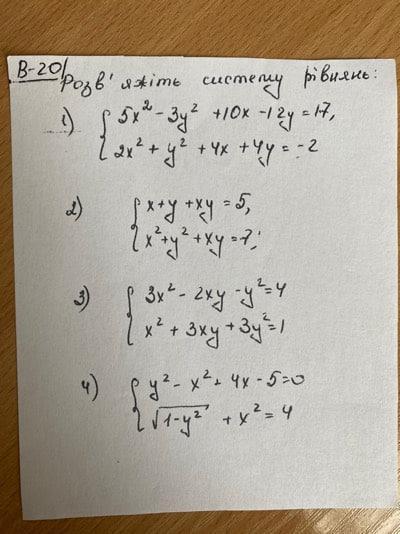 В-20
Розв'яжіть систему рівнянь:
1) { 5x² - 3y² + 10x - 12y = 17,
2x² + y² + 4x + 4y = -2
2) { x + y + xy = 5,
x² + y² + xy = 7;
3) { 3x² - 2xy - y² = 4
x² + 3xy + 3y² = 1
4) { y² - x² + 4x - 5 = 0
√(1-y²) + x² = 4